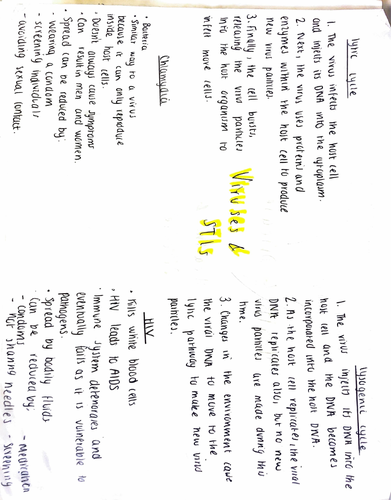 lytic cycle
1. The virus infects the host cell
and injects its DNA into the cytoplasm.
2. Next, the virus uses proteins and
enzymes within the host cell to produce
new virus particles.
3. Finally, the cell bursts,
releasing the virus particles
into the host organism to
infect more cells.
Lysogenic cycle
1. The virus injects its DNA into the
host cell and the DNA becomes
incorporated into the host DNA.
2. As the host cell replicates, the viral
DNA replicates also, but no new
virus particles are made during this
time.
3. Changes in the environment cause
the viral DNA to move to the
lytic pathway to make new virus
particles.
Viruses &
STIs
Chlamydia
• Bacteria
• Similar way to a virus
because it can only reproduce
inside host cells
• Doesn't always cause symptoms
• Can result in men and women.
• Spread can be reduced by:
- wearing a condom
- screening individuals
- avoiding sexual contact.
HIV
• Kills white blood cells
• HIV leads to AIDS
• Immune system deteriorates and
eventually fails as it is vulnerable to
pathogens.
• Spread by bodily fluids
• Can be reduced by:
- condoms - Medication
- Not sharing needles - Screening